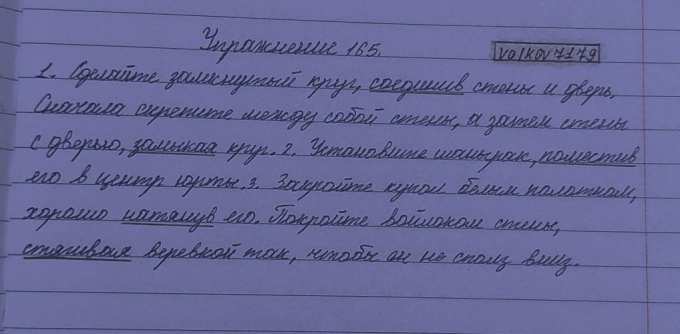 Упражнение 165.
volkov7179
1. Сделайте замкнутый круг, соединив стены и дверь.
Сначала скрепите между собой стены, а затем стены
с дверью, замыкая круг. 2. Установите шанырак, поместив
его в центр юрты. 3. Закройте купол белым полотном,
хорошо натянув его. Покройте войлоком стены,
стягивая веревкой так, чтобы он не сполз вниз.